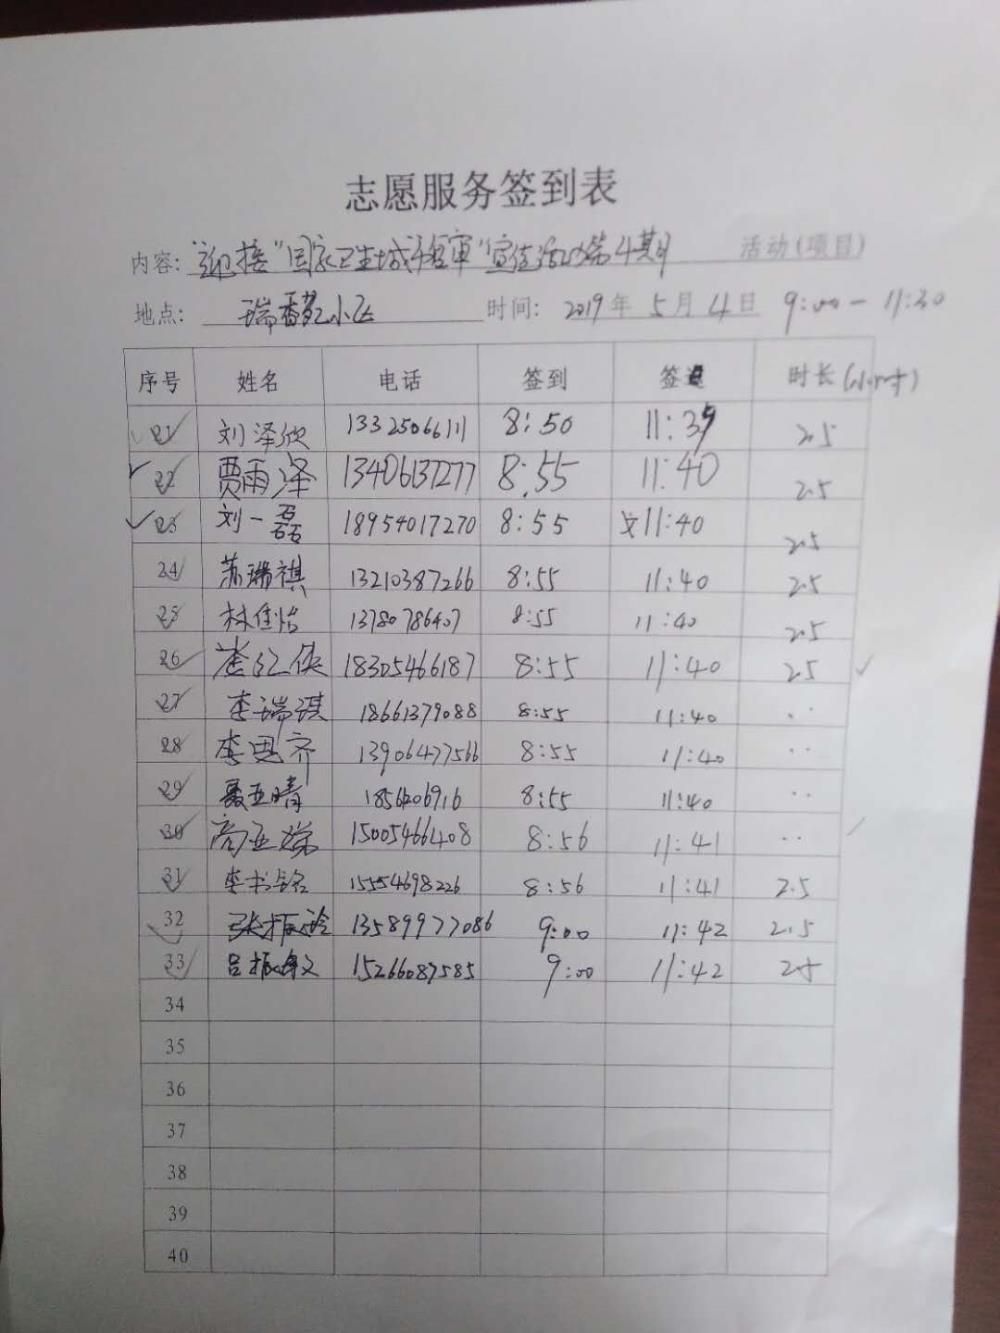 志愿服务签到表
内容: 迎接"国家卫生城市复审"宣传活动第4期 活动(项目)
地点: 瑞香苑小区 时间: 2019年5月4日 9:00-11:30
序号 姓名 电话 签到 签退 时长(小时)
21 刘泽欣 13325066111 8:50 11:39 2.5
22 贾雨泽 13406137277 8:55 11:40 2.5
23 刘一磊 18954017270 8:55 11:40 2.5
24 苏瑞祺 13210387266 8:55 11:40 2.5
25 林佳怡 13780786407 8:55 11:40 2.5
26 18305466187 8:55 11:40 2.5
27 李瑞琪 18661379088 8:55 11:40 ..
28 李思齐 13906477566 8:55 11:40 ..
29 聂亚晴 1856206916 8:55 11:40 ..
30 商亚瑞 15005466408 8:56 11:41 ..
31 李书铭 15554698226 8:56 11:41 2.5
32 张振玲 13589977086 9:00 11:42 2.5
33 15266087585 9:00 11:42 2.5
34
35
36
37
38
39
40